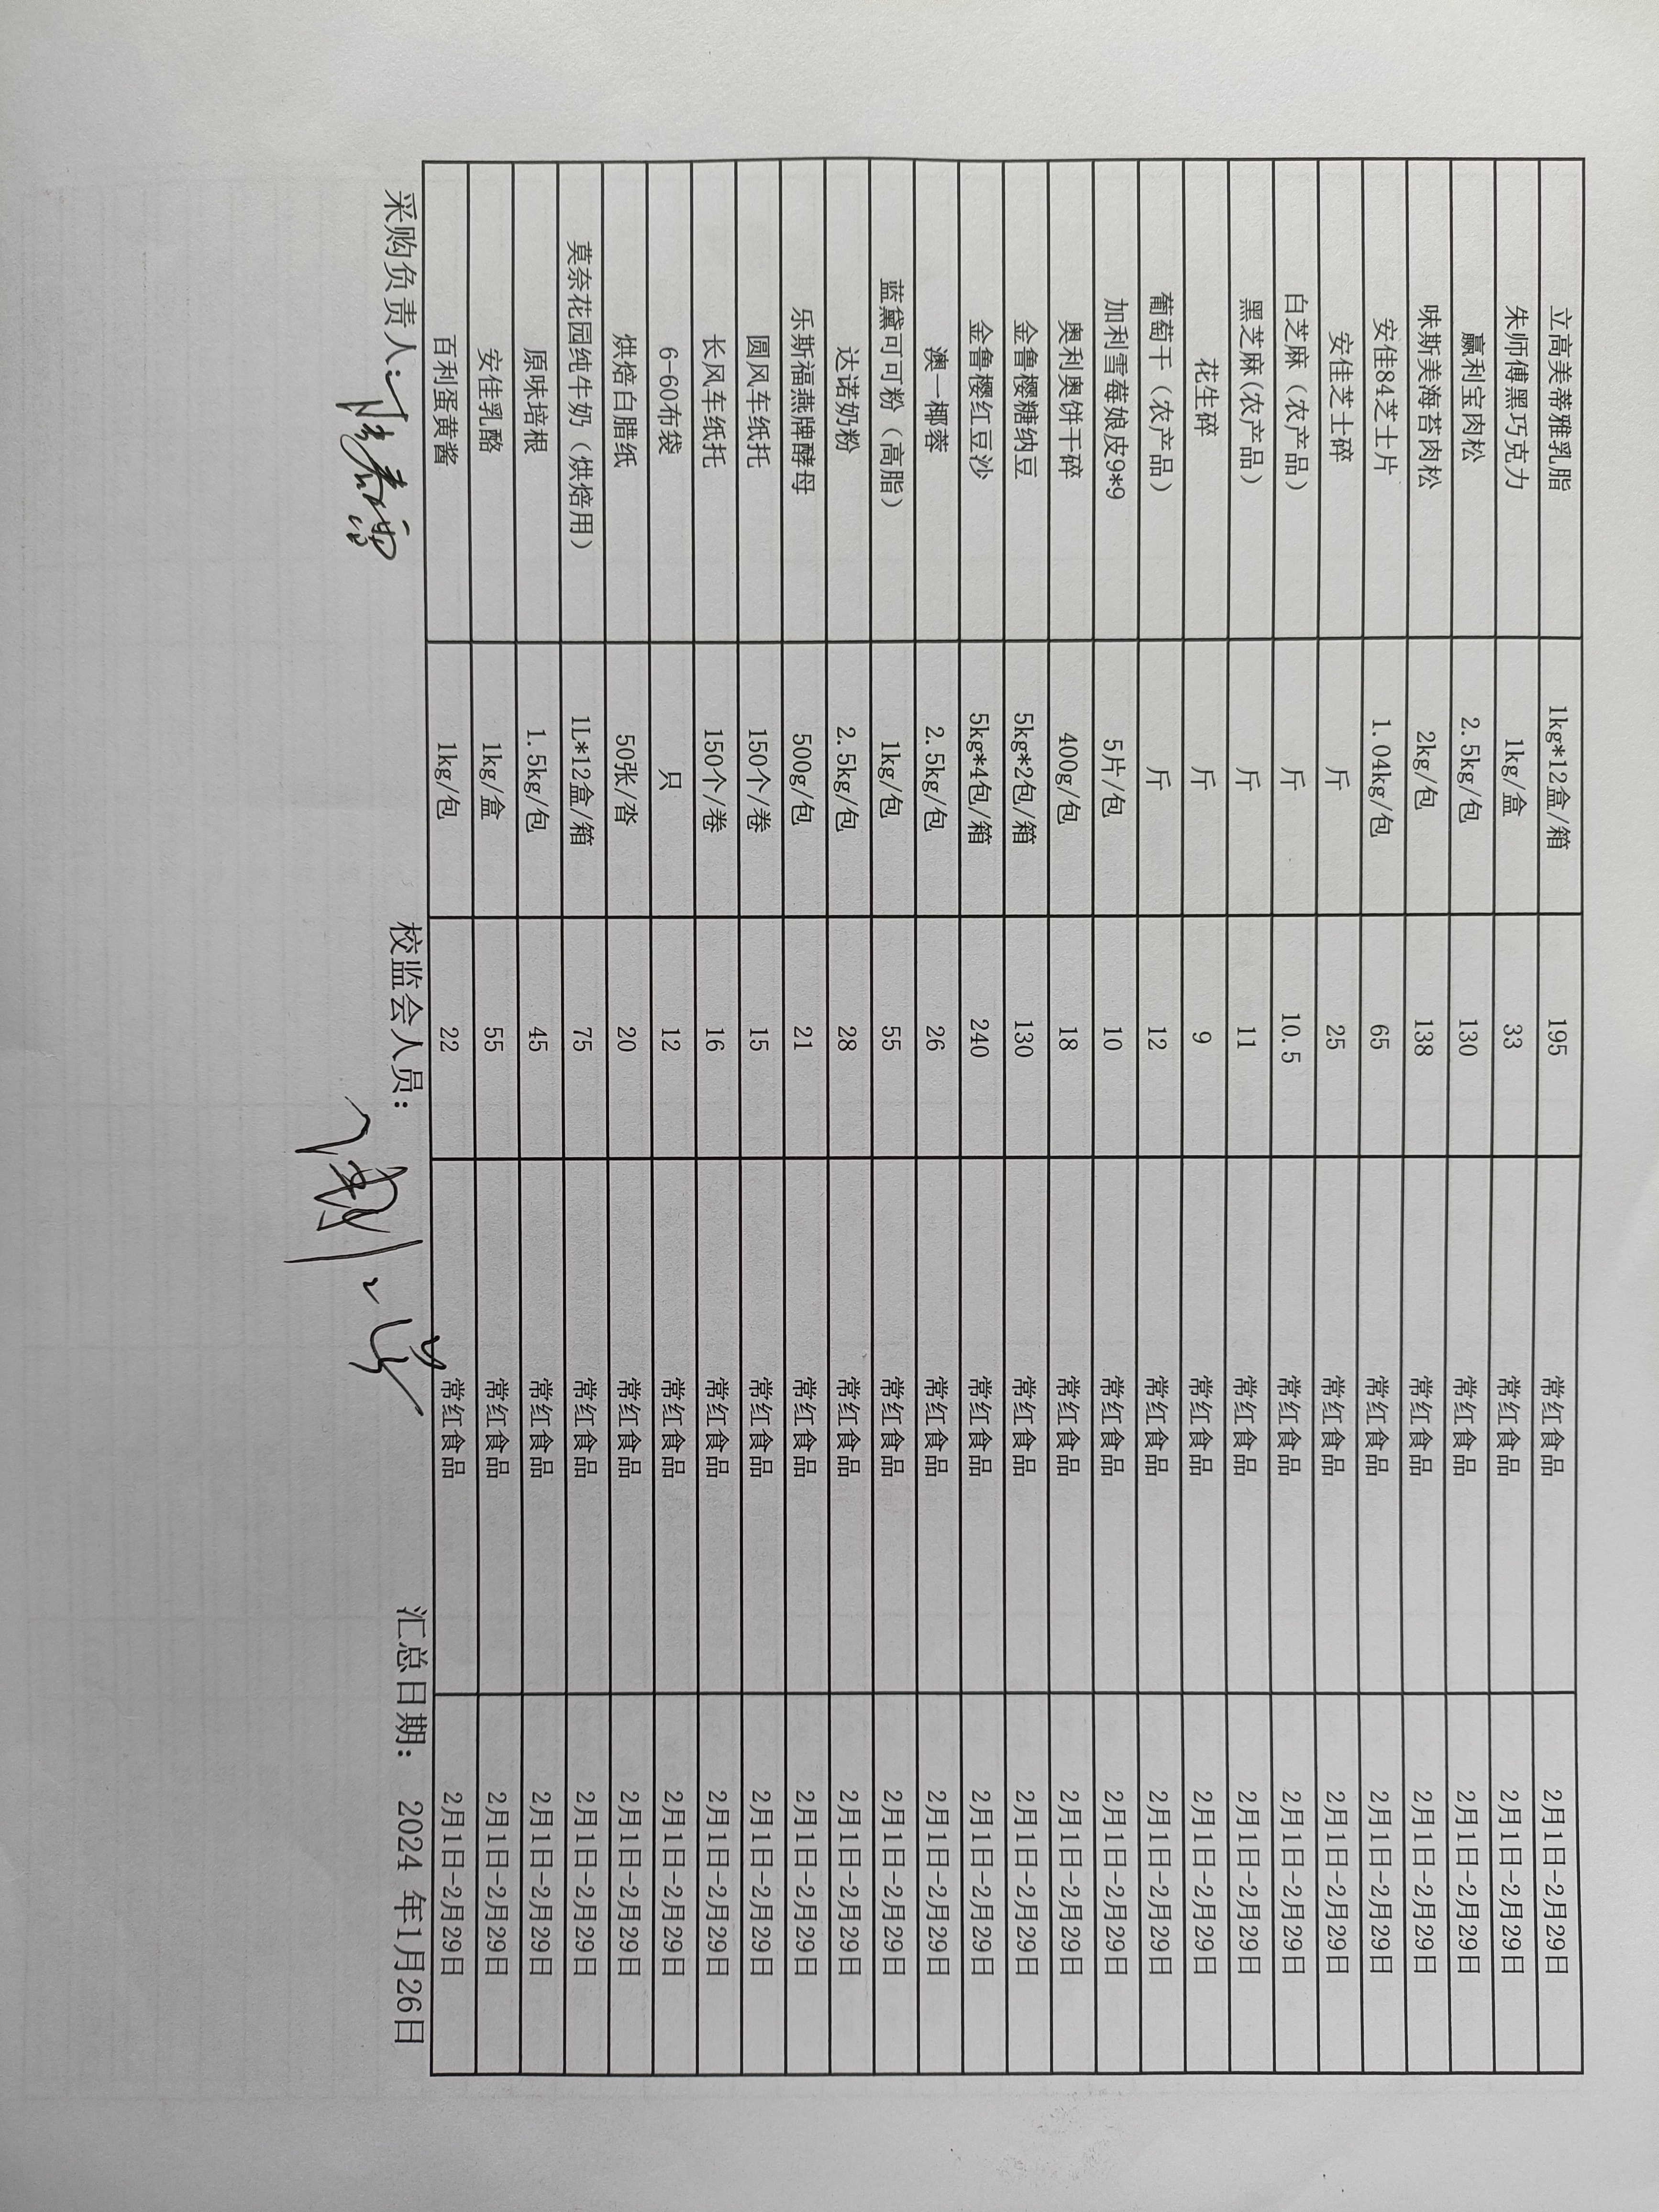 立高美蒂雅乳脂 1kg*12盒/箱 195 常红食品 2月1日-2月29日
朱师傅黑巧克力 1kg/盒 33 常红食品 2月1日-2月29日
赢利宝肉松 2.5kg/包 130 常红食品 2月1日-2月29日
味斯美海苔肉松 2kg/包 138 常红食品 2月1日-2月29日
安佳84芝士片 1.04kg/包 65 常红食品 2月1日-2月29日
安佳芝士碎 斤 25 常红食品 2月1日-2月29日
白芝麻（农产品） 斤 10.5 常红食品 2月1日-2月29日
黑芝麻(农产品） 斤 11 常红食品 2月1日-2月29日
花生碎 斤 9 常红食品 2月1日-2月29日
葡萄干（农产品） 斤 12 常红食品 2月1日-2月29日
加利雪莓娘皮9*9 5片/包 10 常红食品 2月1日-2月29日
奥利奥饼干碎 400g/包 18 常红食品 2月1日-2月29日
金鲁樱糖纳豆 5kg*2包/箱 130 常红食品 2月1日-2月29日
金鲁樱红豆沙 5kg*4包/箱 240 常红食品 2月1日-2月29日
澳一椰蓉 2.5kg/包 26 常红食品 2月1日-2月29日
蓝黛可可粉（高脂） 1kg/包 55 常红食品 2月1日-2月29日
达诺奶粉 2.5kg/包 28 常红食品 2月1日-2月29日
乐斯福燕牌酵母 500g/包 21 常红食品 2月1日-2月29日
圆风车纸托 150个/卷 15 常红食品 2月1日-2月29日
长风车纸托 150个/卷 16 常红食品 2月1日-2月29日
6-60布袋 只 12 常红食品 2月1日-2月29日
烘焙白腊纸 50张/沓 20 常红食品 2月1日-2月29日
莫奈花园纯牛奶（烘焙用） 1L*12盒/箱 75 常红食品 2月1日-2月29日
原味培根 1.5kg/包 45 常红食品 2月1日-2月29日
安佳乳酪 1kg/盒 55 常红食品 2月1日-2月29日
百利蛋黄酱 1kg/包 22 常红食品 2月1日-2月29日
采购负责人: 校监会人员: 汇总日期: 2024 年1月26日